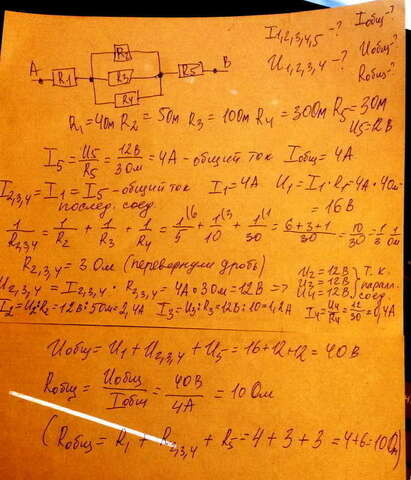 I1,2,3,4,5 -? Iобщ-?
U1,2,3,4 -? Uобщ-?
Rобщ-?
A R1 R2 R3 R4 R5 B
R1=4Ом R2=5Ом R3=10Ом R4=30Ом R5=3Ом
U5=12В
I5 = U5/R5 = 12В/3Ом = 4А - общий ток Iобщ = 4А
I2,3,4 = I1 = I5 - общий ток I1 = 4А U1 = I1·R1 = 4А·4Ом
послед. соед. = 16В
1/R2,3,4 = 1/R2 + 1/R3 + 1/R4 = 1/5 + 1/10 + 1/30 = 6+3+1/30 = 10/30 = 1/3 1/Ом
R2,3,4 = 3 Ом (перевернули дробь)
U2,3,4 = I2,3,4 · R2,3,4 = 4А·3Ом = 12В => U2=12В U3=12В U4=12В } т.к. парал. соед.
I2=U2:R2=12В:5Ом=2,4А I3=U3:R3=12В:10=1,2А I4=U4/R4=12/30=0,4А
Uобщ = U1 + U2,3,4 + U5 = 16+12+12 = 40В
Rобщ = Uобщ/Iобщ = 40В/4А = 10 Ом
(Rобщ = R1 + R2,3,4 + R5 = 4+3+3 = 4+6 = 10Ом)